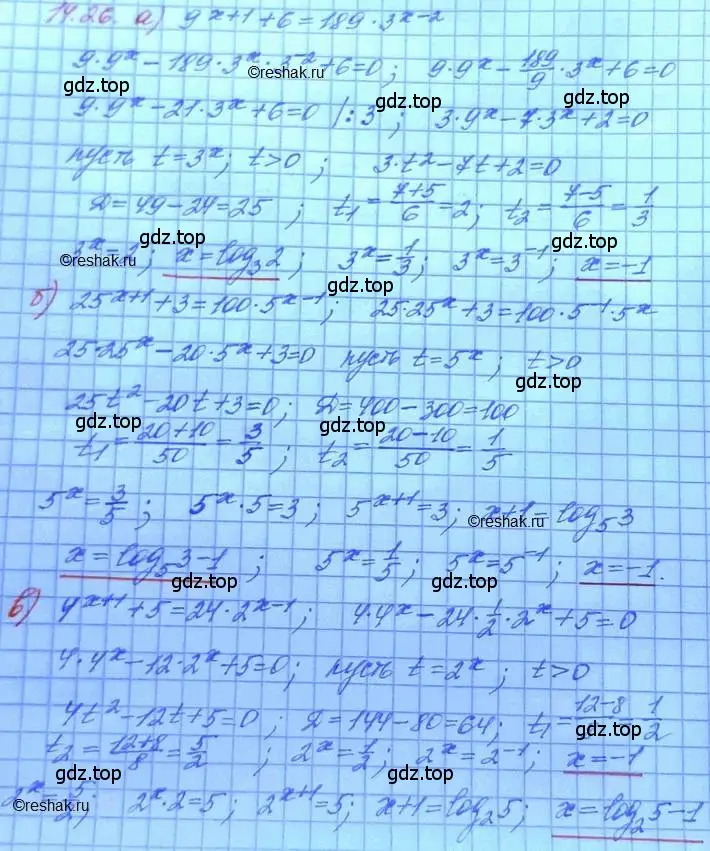 14.26. а) 9^{x+1}+6=189·3^{x-2}
9·9^x-189·3^x·3^{-2}+6=0; 9·9^x-\frac{189}{9}·3^x+6=0
gdz.top ©reshak.ru gdz.top
9·9^x-21·3^x+6=0 |:3; 3·9^x-7·3^x+2=0
gdz.top gdz.top
пусть t=3^x; t>0; 3·t^2-7t+2=0
Д=49-24=25; t_1=\frac{7+5}{6}=2; t_2=\frac{7-5}{6}=\frac{1}{3}
gdz.top gdz.top
3^x=2; x=log_3 2; 3^x=\frac{1}{3}; 3^x=3^{-1}; x=-1
©reshak.ru gdz.top gdz.top
б) 25^{x+1}+3=100·5^{x-1}; 25·25^x+3=100·5^{-1}·5^x
gdz.top
25·25^x-20·5^x+3=0 пусть t=5^x; t>0
gdz.top
25t^2-20t+3=0; Д=400-300=100
gdz.top
t_1=\frac{20+10}{50}=\frac{3}{5}; t_2=\frac{20-10}{50}=\frac{1}{5}
gdz.top
5^x=\frac{3}{5}; 5^x·5=3; 5^{x+1}=3; x+1=log_5 3
gdz.top ©reshak.ru
x=log_5 3-1; 5^x=\frac{1}{5}; 5^x=5^{-1}; x=-1.
gdz.top gdz.top gdz.top
в) 4^{x+1}+5=24·2^{x-1}; 4·4^x-24·\frac{1}{2}·2^x+5=0
4·4^x-12·2^x+5=0; пусть t=2^x; t>0
gdz.top gdz.top
4t^2-12t+5=0; Д=144-80=64; t_1=\frac{12-8}{8}=\frac{1}{2}
gdz.top
t_2=\frac{12+8}{8}=\frac{5}{2}; 2^x=\frac{1}{2}; 2^x=2^{-1}; x=-1
gdz.top gdz.top gdz.top
2^x=\frac{5}{2}; 2^x·2=5; 2^{x+1}=5; x+1=log_2 5; x=log_2 5-1
©reshak.ru gdz.top gdz.top